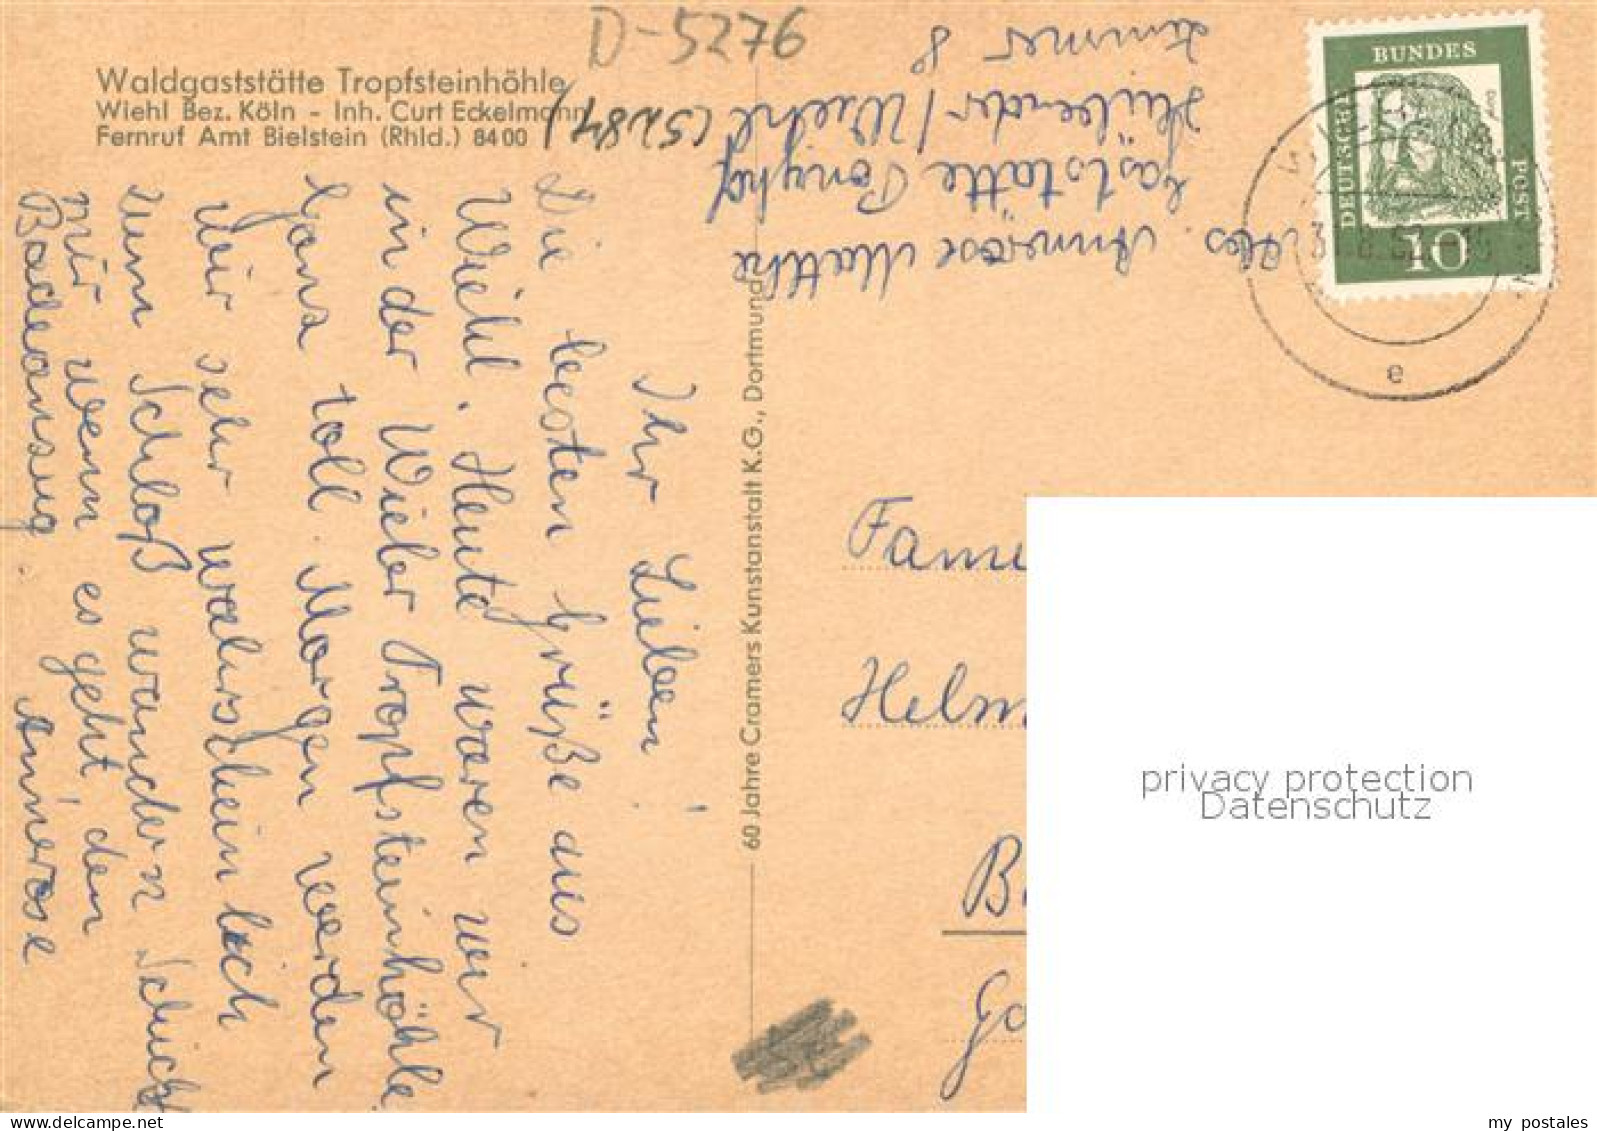 D-5276
Waldgaststätte Tropfsteinhöhle
Wiehl Bez. Köln - Inh. Curt Eckelmann
Fernruf Amt Bielstein (Rhld.) 8400
Abs. Annerose Matthe
Gaststätte Ponyhof
/ Wiehl (5284)
Zimmer 8
DEUTSCHE
BUNDES
POST
10
e
Ihr Lieben!
Die besten Grüße aus
Wiehl. Heute waren wir
in der Wieler Tropfsteinhöhle
Ganz toll. Morgen werden
wir sehr wahrscheinlich
zum Schloß wandern. Schickt
mir wenn es geht, den
Badeanzug.
Annerose
60 Jahre Cramers Kunstanstalt K.G., Dortmund
Fami
Helm
B
Go
privacy protection
Datenschutz
my postales